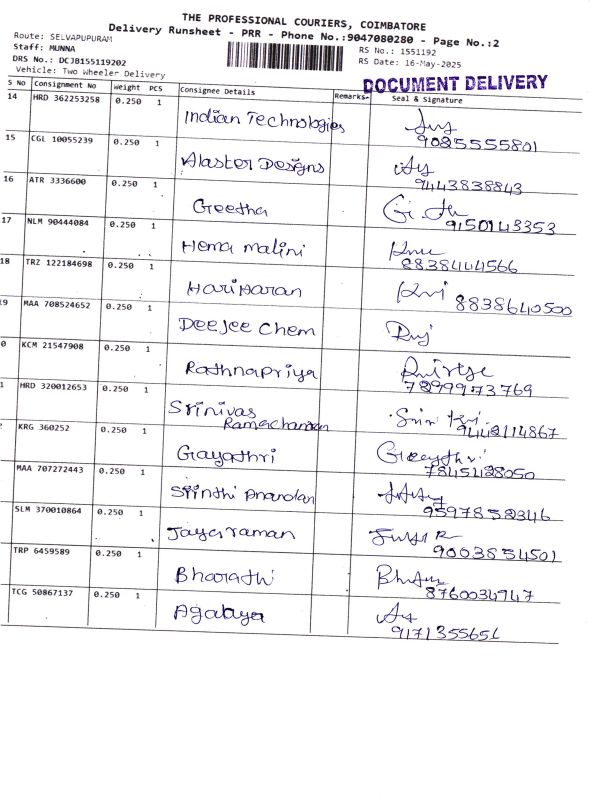 THE PROFESSIONAL COURIERS, COIMBATORE
Delivery Runsheet - PRR - Phone No.:9047080280 - Page No.:2
Route: SELVAPUPURAM
Staff: MUNNA
DRS No.: DCJB155119202
Vehicle: Two Wheeler Delivery
RS No.: 1551192
RS Date: 16-May-2025
DOCUMENT DELIVERY
S No Consignment No Weight PCS Consignee Details Remarks Seal & Signature
14 HRD 362253258 0.250 1 Indian Technologies
9025555801
15 CGL 10055239 0.250 1 Alaster Designs
9443838843
16 ATR 3336600 0.250 1 Geetha
9150143353
17 NLM 90444084 0.250 1 Hema malini
8838444566
18 TRZ 122184698 0.250 1 Hariharan
8838640500
19 MAA 708524652 0.250 1 Deejee Chem
0 KCM 21547908 0.250 1 Rathnapriya
7299973769
1 HRD 320012653 0.250 1 Srinivas
Ramachandran
9442114867
KRG 360252 0.250 1 Gayathri
Gaayathri
78454128050
MAA 707272443 0.250 1 Srinthi Anandan
9597852346
SLM 370010864 0.250 1 Jayaraman
9003854501
TRP 6459589 0.250 1 Bharathi
8760034747
TCG 50867137 0.250 1 Agalaya
9171355651